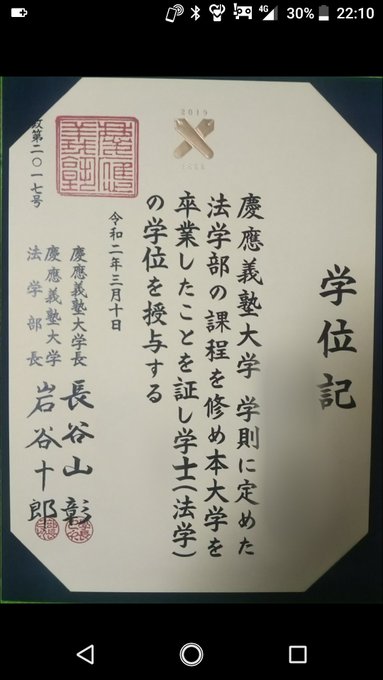 4G 30% 22:10
2019
学位記
慶應義塾大学 学則に定めた
法学部の課程を修め本大学を
卒業したことを証し学士(法学)
の学位を授与する
令和二年三月十日
慶應義塾大学長 長谷山 彰
慶應義塾大学
法学部長 岩谷十郎
政第二〇一七号
慶應
義塾